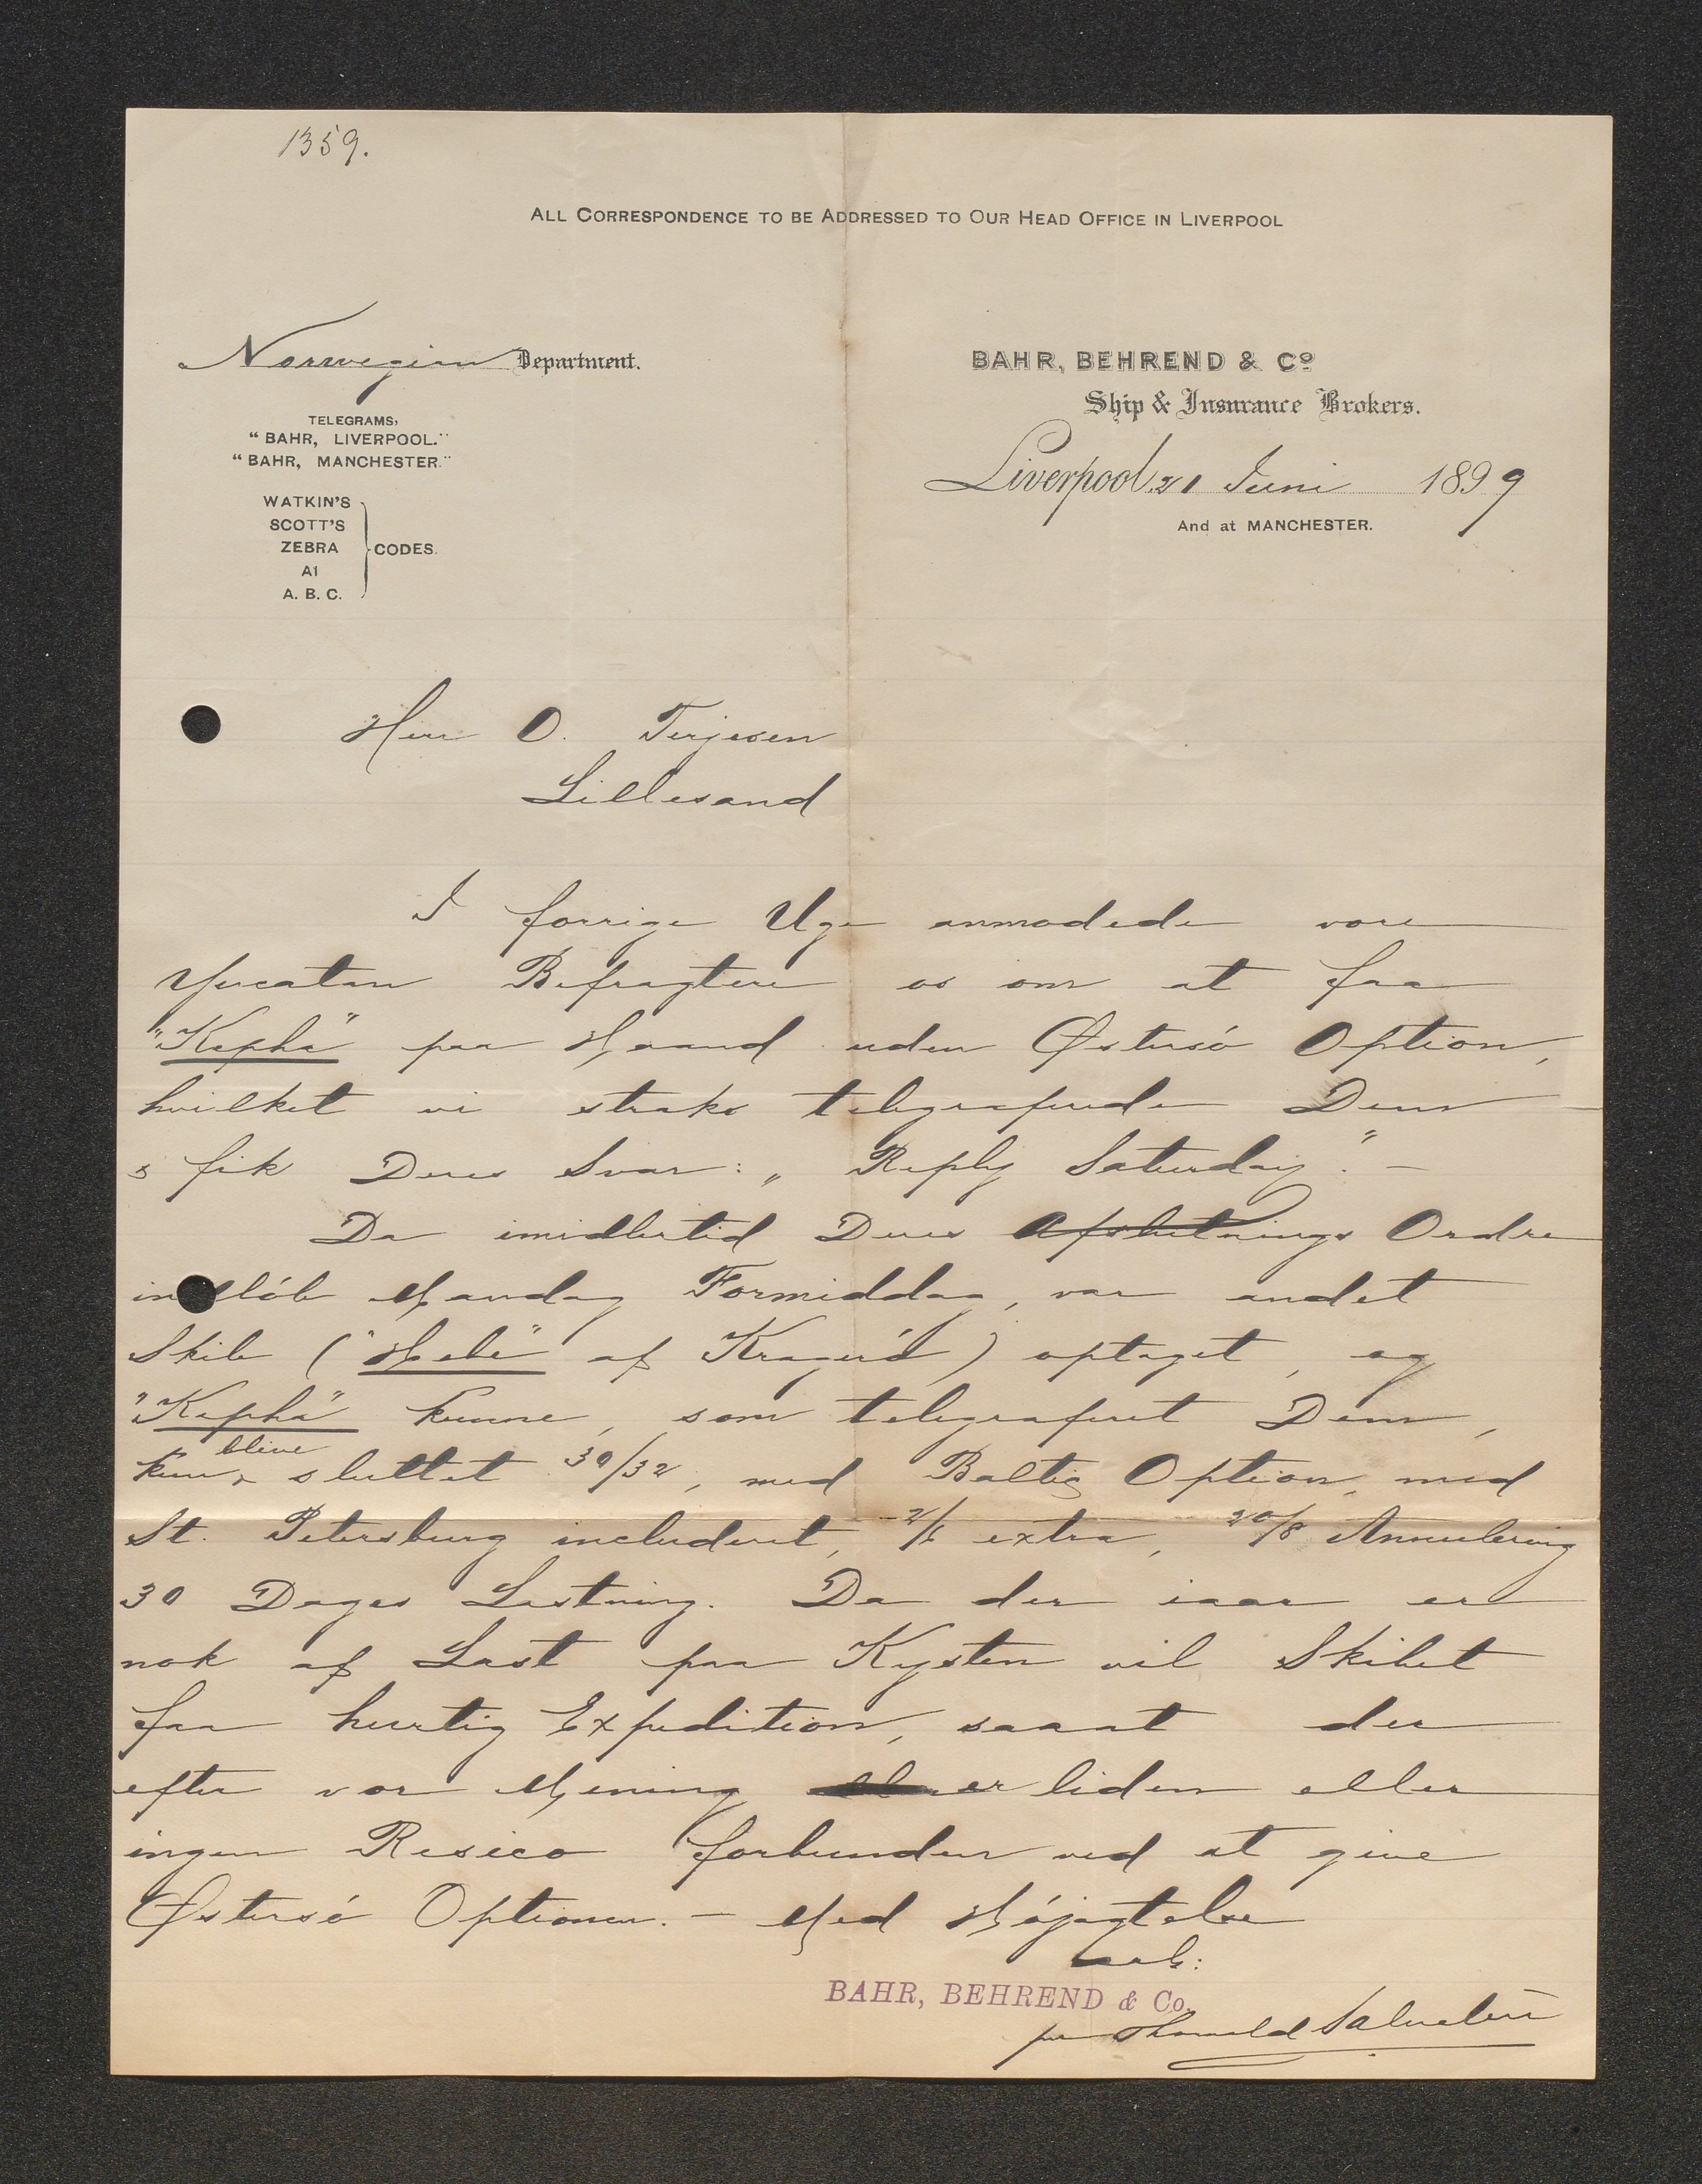 1359.
ALL CORRESPONDENCE TO BE ADDRESSED TO OUR HEAD OFFICE IN LIVERPOOL
Norwegian Department.
BAHR, BEHREND & Co
Ship & Insurance Brokers.
TELEGRAMS,
"BAHR, LIVERPOOL."
"BAHR, MANCHESTER."
Liverpool, 21 Juni 1899
And at MANCHESTER.
WATKIN'S
SCOTT'S
ZEBRA
A1
A. B. C.
CODES.
Herr O. Terjesen
Lillesand
I forrige Uge anmodede vore
Yucatan Befragtere os om at faa
"Kepha" paa Haand uden Østersö Option,
hvilket vi straks telegraferede Dem
& fik Deres Svar: "Reply Saturday". -
Da imidlertid Deres Afslutnings Ordre
indlöb Mandag Formiddag, var andet
Skib ("Hebe" af Kragerö) optaget, og
"Kepha" kunne, som telegraferet Dem,
kun blive sluttet 30/32, med Baltic Option, med
St. Petersburg includeret, 2/6 extra, 20/8 Annulering
30 Dages Lastning. Da der iaar er
nok af Last paa Kysten vil Skibet
faa hurtig Expedition, saaat der
efter vor Mening er liden eller
ingen Resico forbunden ved at give
Østersö Optionen. - Med Höjagtelse
BAHR, BEHREND & Co.
per Thorvald Salvesen